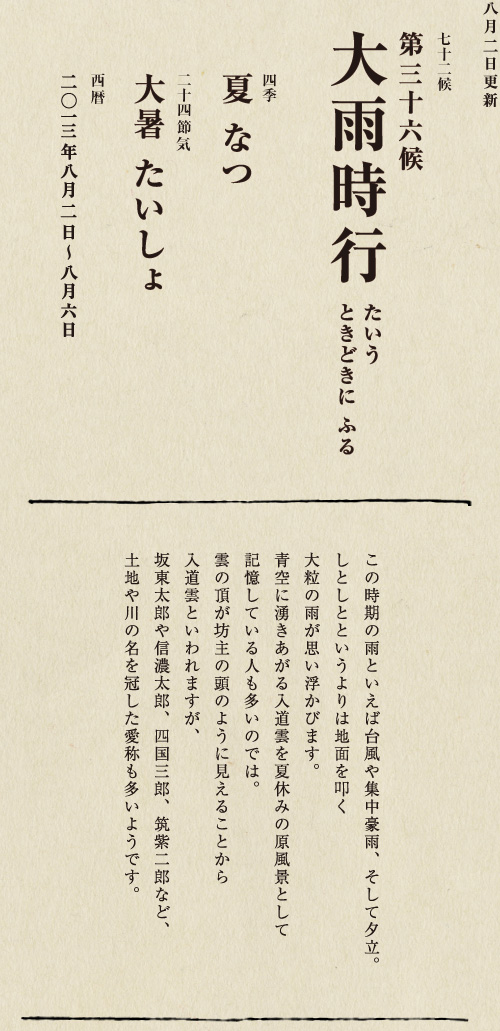 八月二日更新
七十二候
第三十六候
大雨時行
たいう
ときどきに ふる
四季
夏 なつ
二十四節気
大暑 たいしょ
西暦
二〇一三年八月二日〜八月六日
この時期の雨といえば台風や集中豪雨、そして夕立。
しとしとというよりは地面を叩く
大粒の雨が思い浮かびます。
青空に湧きあがる入道雲を夏休みの原風景として
記憶している人も多いのでは。
雲の頂が坊主の頭のように見えることから
入道雲といわれますが、
坂東太郎や信濃太郎、四国三郎、筑紫二郎など、
土地や川の名を冠した愛称も多いようです。